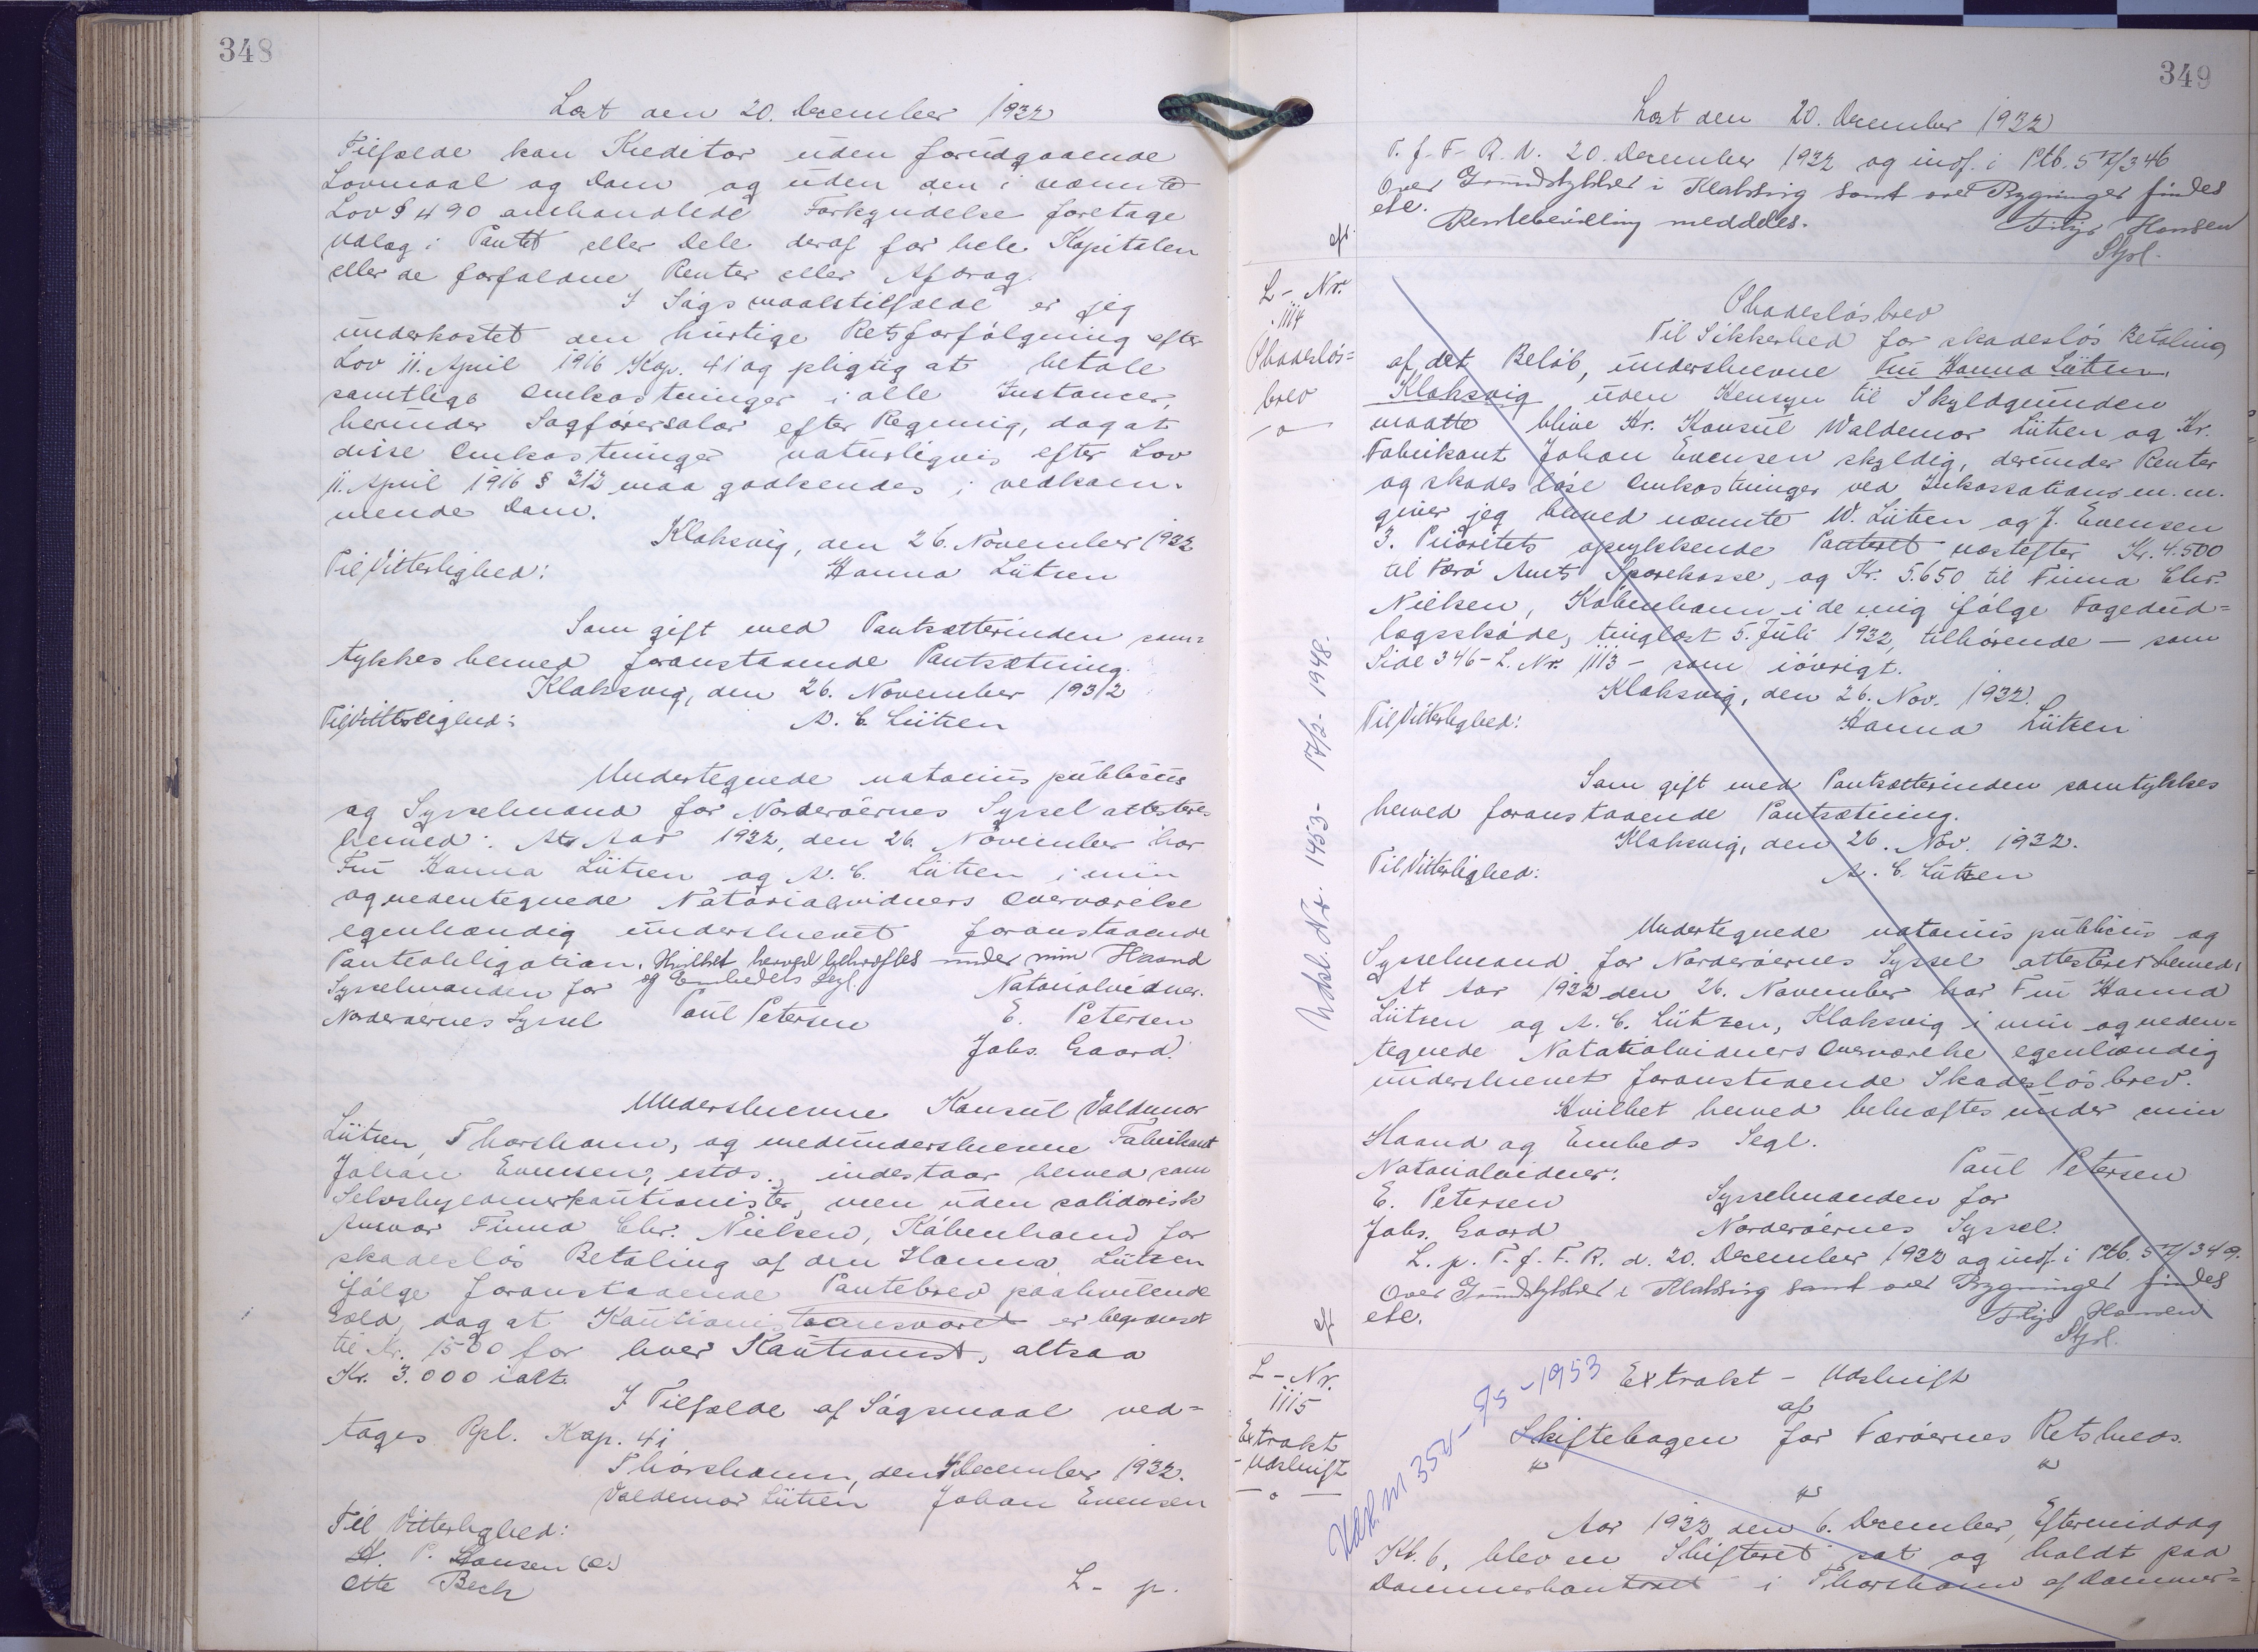 348
Læst den 20. December 1932
Tilfælde kan Kreditor uden forudgaaende
Lovmaal og Dom og uden den i nævnte
Lov § 490 omhandlede Forkyndelse foretage
Udlæg i Pantet eller Dele deraf for hele Kapitalen
eller de forfaldne Renter eller Afdrag.
I Søgsmaalstilfælde er jeg
underkastet den hurtige Retsforfølgning efter
Lov 11. April 1916 Kap. 41 og pligtig at betale
samtlige Omkostninger i alle Instanser,
herunder Sagførersalær efter Regning, dog at
disse Omkostninger naturligvis efter Lov
11. April 1916 § 312 maa godkendes i vedkom-
mende Dom.
Klaksvig, den 26. November 1932
Til Vitterlighed: Hanna Lützen
Som gift med Pantsætterinden sam=
tykkes herved foranstaaende Pantsætning.
Klaksvig, den 26. November 1932
Til Vitterlighed: A. C. Lützen
Undertegnede notarius publicus
og Sysselmand for Norderøernes Syssel attestere
herved: At Aar 1932, den 26. November har
Fru Hanna Lützen og A. C. Lützen i min
og nedentegnede Notarialvidners Overværelse
egenhændig underskrevet foranstaaende
Panteobligation. Hvilket herved bekræftes under min Haand
og Embedets Segl.
Sysselmanden for Notarialvidner.
Norderøernes Syssel Poul Petersen E. Petersen
Johs. Gaard.
Underskrevne Konsul Valdemar
Lützen, Thorshavn, og medunderskrevne Fabrikant
Johan Evensen, estds., indestaar herved som
Selvskyldnerkautionister, men uden solidarisk
Ansvar Firma Chr. Nielsen, København for
skadesløs Betaling af den Hanna Lützen
ifølge foranstaaende Pantebrev paahvilende
Gæld, dog at Kautionistansvaret er begrænset
til Kr. 1500 for hver Kautionist, altsaa
Kr. 3.000 ialt.
I Tilfælde af Søgsmaal ved=
tages Rpl. Kap. 41
Thorshavn, den December 1932.
Valdemar Lützen Johan Evensen
Til Vitterlighed:
H. P. Hansen (e.)
Otto Bech L- p.
349
Læst den 20. December 1932
T. f. F. R. d. 20. December 1932 og indf. i Ptb. 5 /346
Over Grundstykker i Klaksvig samt over Bygninger findes
etc.
Rentebevilling meddeles. Hansen
L- Nr.
1114
Skadesløs=
brev
Skadesløsbrev
Til Sikkerhed for skadesløs Betaling
af det Beløb, underskrevne Fru Hanna Lützen,
Klaksvig uden Hensyn til Skyldgrunden
maatte blive Hr. Konsul Waldemar Lützen og Hr.
Fabrikant Johan Evensen skyldig, derunder Renter
og skadesløse Omkostninger ved Inkassation m. m.
giver jeg herved nævnte W. Lützen og J. Evensen
3. Prioritets oprykkende Panteret næstefter Kr. 4.500
til Færø Amts Sparekasse, og Kr. 5.650 til Firma Chr.
Nielsen, København i de mig ifølge Fogedud=
lægsskøde, tinglæst 5. Juli 1932, tilhørende - som
Side 346 - L. Nr. 1113 - som iøvrigt.
Klaksvig, den 26. Nov. 1932.
Til Vitterlighed: Hanna Lützen
Som gift med Pantsætterinden samtykkes
herved foranstaaende Pantsætning.
Klaksvig, den 26. Nov. 1932.
Til Vitterlighed: A. C. Lützen
Udsl. Nr. 1453 - 17/2 - 1948.
Undertegnede notarius publicus og
Sysselmand for Norderøernes Syssel attesterer herved:
At Aar 1932 den 26. November har Fru Hanna
Lützen og A. C. Lützen, Klaksvig i min og neden=
tegnede Notarialvidners Overværelse egenhændig
underskrevet foranstaaende Skadesløsbrev.
Hvilket herved bekræftes under min
Haand og Embeds Segl.
Notarialvidner: Poul Petersen
E. Petersen Sysselmanden for
Johs. Gaard Norderøernes Syssel.
L. p. T. f. F. R. d. 20. December 1932 og indf. i Ptb. 5 /349.
Over Grundstykker i Klaksvig samt over Bygninger findes
etc. Hansen
L- Nr.
1115
Extrakt
- Udskrift
Extrakt - Udskrift
af
Skiftebogen for Færøernes Retskreds.
Aar 1932 den 6. December, Eftermiddag
Kl. 6, blev en Skifteret sat og holdt paa
Dommerkontoret i Thorshavn af Dommer=